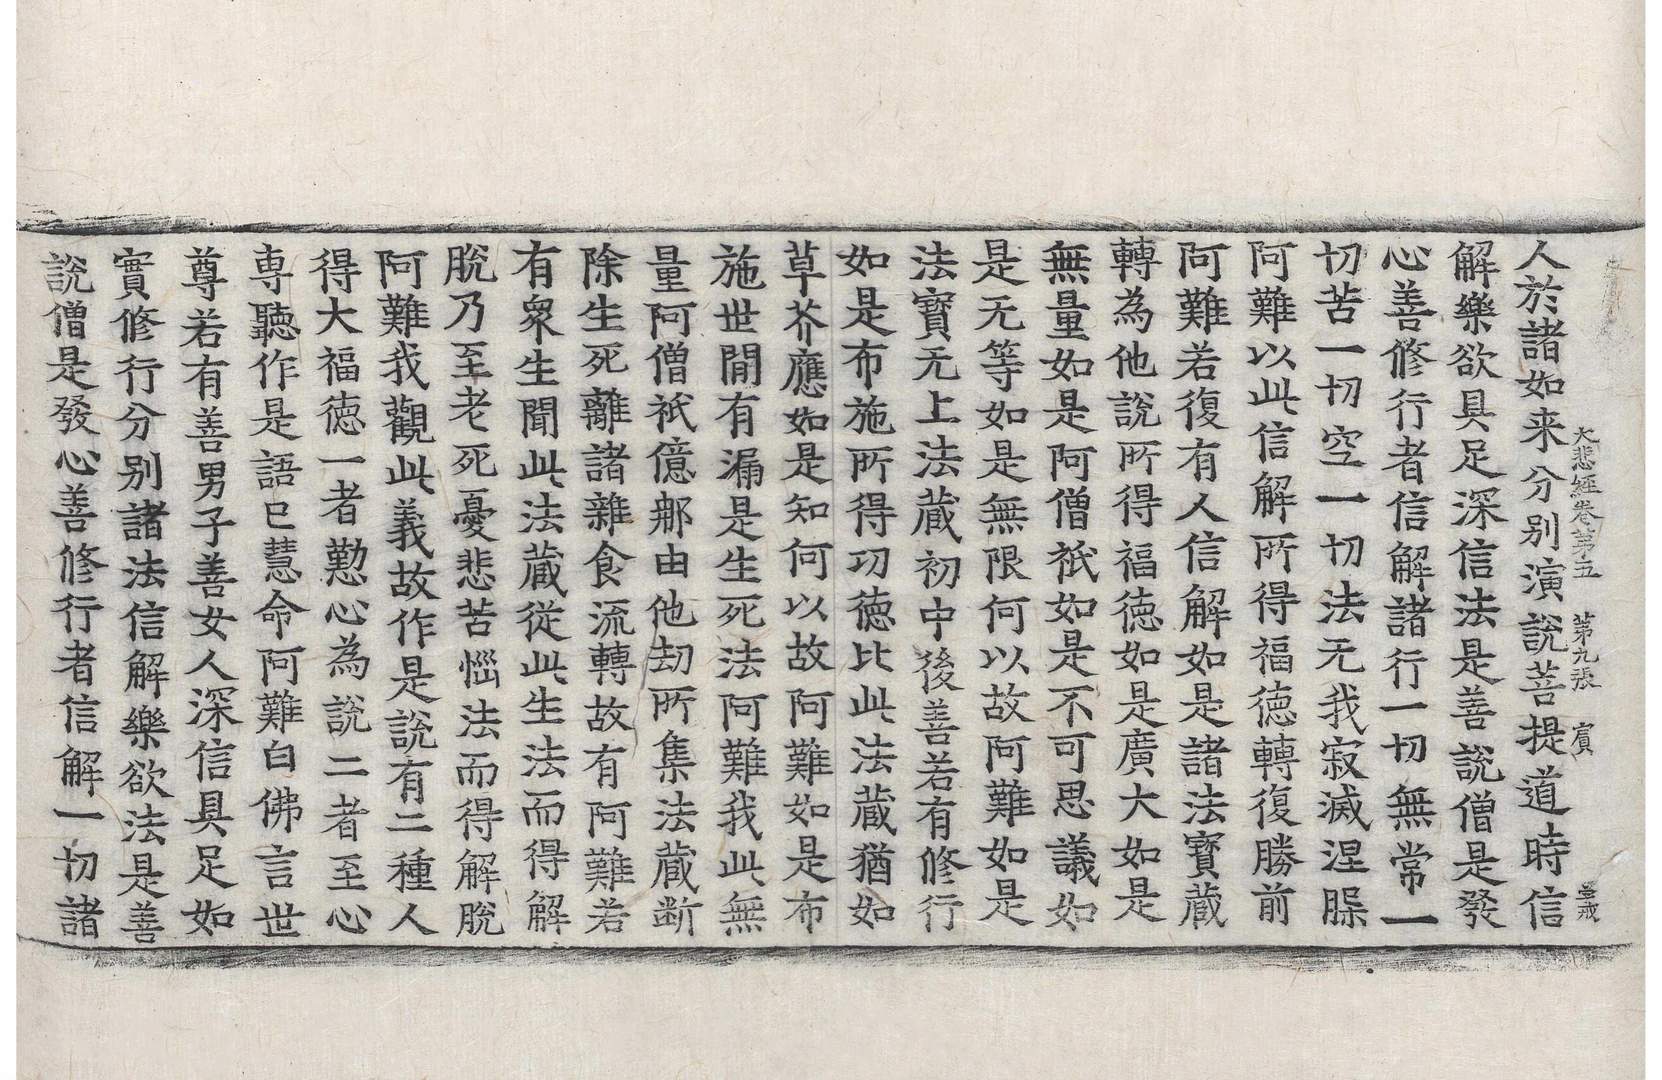 大悲經卷第五 第九張 賓
人於諸如来分別演說菩提道時信
解樂欲具足深信法是善說僧是發
心善修行者信解諸行一切無常一
切苦一切空一切法无我寂滅涅槃
阿難以此信解所得福德轉復勝前
阿難若復有人信解如是諸法寶蔵
轉為他說所得福德如是廣大如是
無量如是阿僧祇如是不可思議如
是无等如是無限何以故阿難如是
法寶无上法蔵初中後善若有修行
如是布施所得功德比此法蔵猶如
草芥應如是知何以故阿難如是布
施世間有漏是生死法阿難我此無
量阿僧祇億那由他劫所集法蔵断
除生死離諸雜食流轉故有阿難若
有衆生聞此法蔵從此生法而得解
脫乃至老死憂悲苦惱法而得解脫
阿難我觀此義故作是說有二種人
得大福德一者懃心為說二者至心
専聽作是語已慧命阿難白佛言世
尊若有善男子善女人深信具足如
實修行分別諸法信解樂欲法是善
說僧是發心善修行者信解一切諸